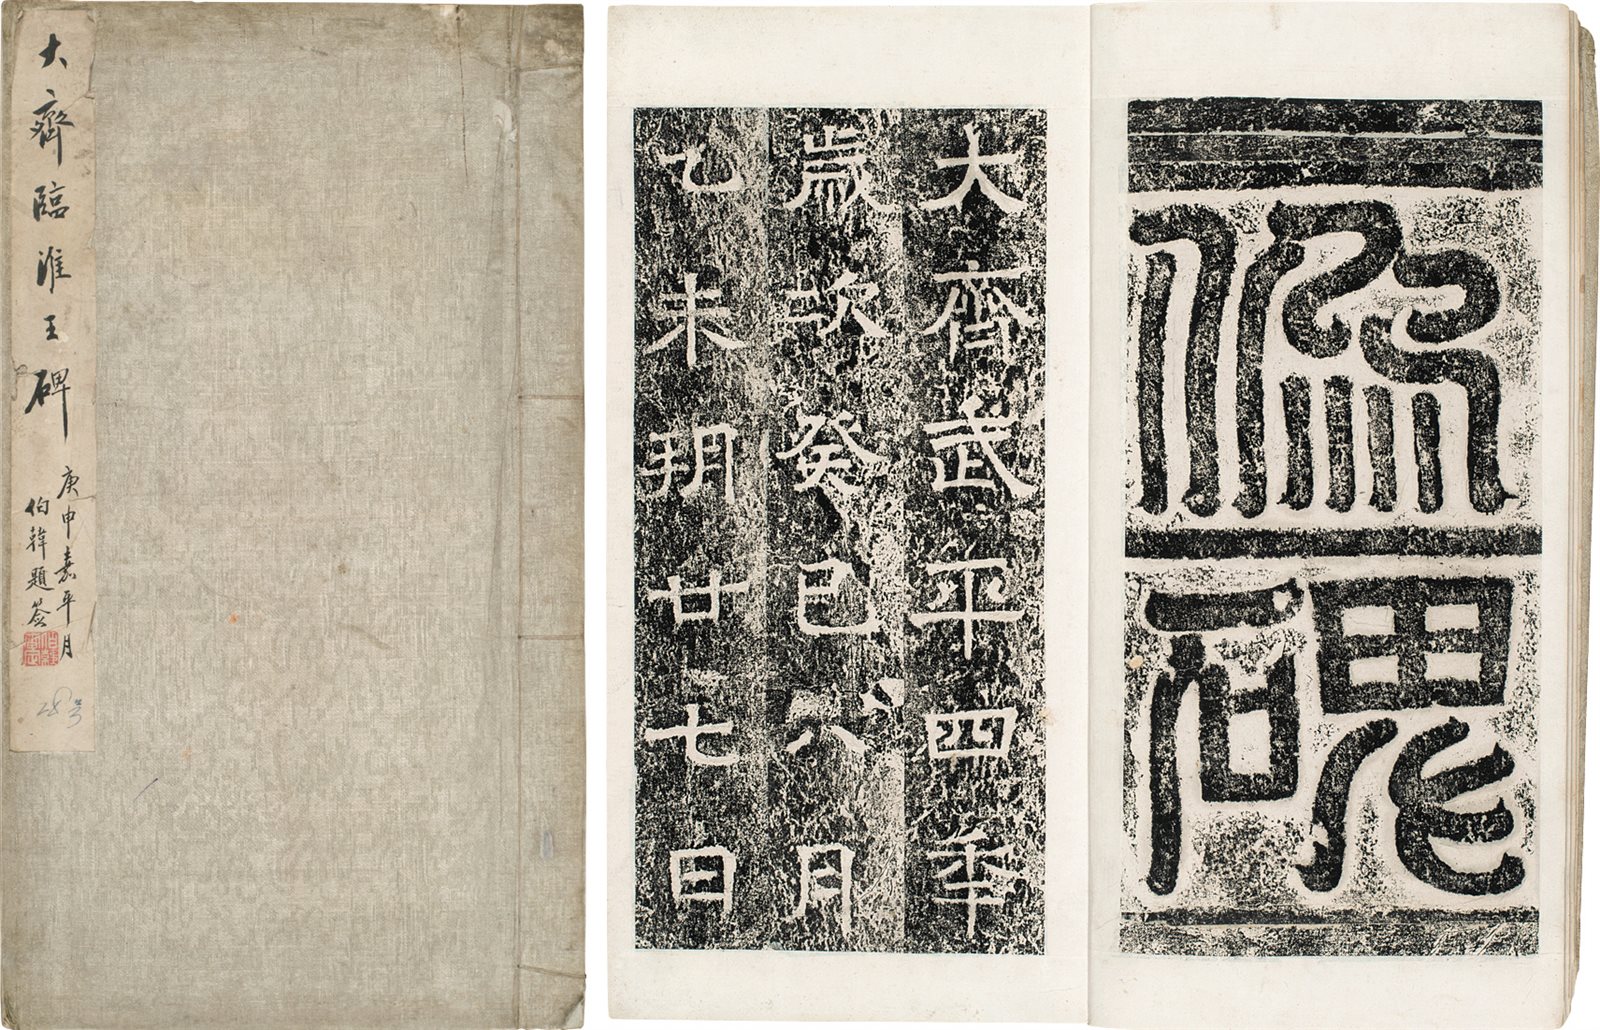 大齊臨淮王碑
庚申嘉平月
伯韓題签
28号
像碑
大齊武平四年
歲次癸巳六月
乙未朔廿七日